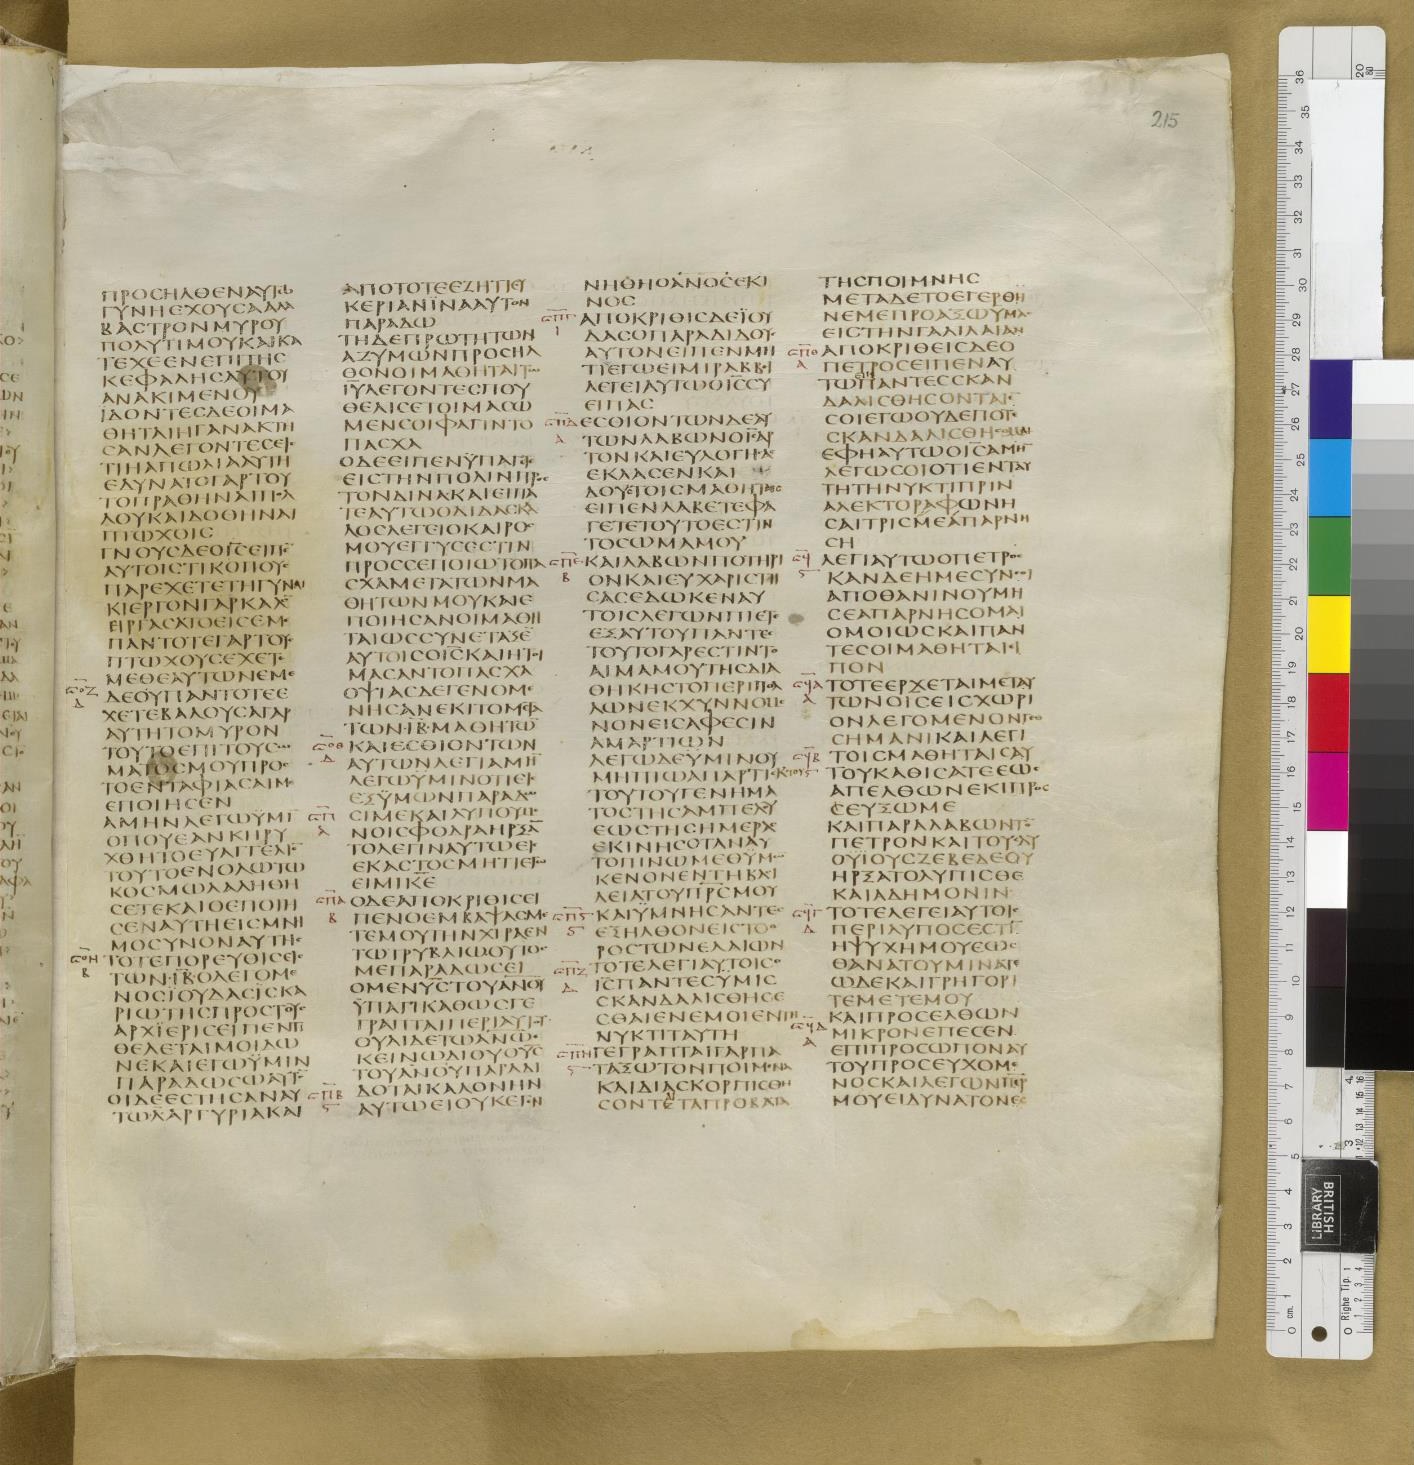 215
ΠΡΟΣΗΛΘΕΝΑΥΤΩ
ΓΥΝΗΕΧΟΥΣΑΑΛΑ
ΒΑΣΤΡΟΝΜΥΡΟΥ
ΠΟΛΥΤΙΜΟΥΚΑΙΚΑ
ΤΕΧΕΕΝΕΠΙΤΗΣ
ΚΕΦΑΛΗΣΑΥΤΟΥ
ΑΝΑΚΙΜΕΝΟΥ
ΪΔΟΝΤΕΣΔΕΟΙΜΑ
ΘΗΤΑΙΗΓΑΝΑΚΤΗ
ΣΑΝΛΕΓΟΝΤΕΣΕΙΣ
ΤΙΗΑΠΩΛΙΑΑΥΤΗ
ΕΔΥΝΑΤΟΓΑΡΤΟΥ
ΤΟΠΡΑΘΗΝΑΙΠΟΛ
ΛΟΥΚΑΙΔΟΘΗΝΑΙ
ΠΤΩΧΟΙΣ
ΓΝΟΥΣΔΕΟΙΣΕΙΠΕ
ΑΥΤΟΙΣΤΙΚΟΠΟΥΣ
ΠΑΡΕΧΕΤΕΤΗΓΥΝΑΙ
ΚΙΕΡΓΟΝΓΑΡΚΑΛΟ
ΕΙΡΓΑΣΑΤΟΕΙΣΕΜΕ
ΠΑΝΤΟΤΕΓΑΡΤΟΥΣ
ΠΤΩΧΟΥΣΕΧΕΤΕ
ΜΕΘΕΑΥΤΩΝΕΜΕ
ΔΕΟΥΠΑΝΤΟΤΕΕ
ΧΕΤΕΒΑΛΟΥΣΑΓΑΡ
ΑΥΤΗΤΟΜΥΡΟΝ
ΤΟΥΤΟΕΠΙΤΟΥΣΩ
ΜΑΤΟΣΜΟΥΠΡΟΣ
ΤΟΕΝΤΑΦΙΑΣΑΙΜΕ
ΕΠΟΙΗΣΕΝ
ΑΜΗΝΛΕΓΩΫΜΙ
ΟΠΟΥΕΑΝΚΗΡΥ
ΧΘΗΤΟΕΥΑΓΓΕΛΙΟ
ΤΟΥΤΟΕΝΟΛΩΤΩ
ΚΟΣΜΩΛΑΛΗΘΗ
ΣΕΤΕΚΑΙΟΕΠΟΙΗ
ΣΕΝΑΥΤΗΕΙΣΜΝΗ
ΜΟΣΥΝΟΝΑΥΤΗΣ
ΤΟΤΕΠΟΡΕΥΘΙΣΕΙΣ
ΤΩΝ·ΙΒ·ΟΛΕΓΟΜΕ
ΝΟΣΪΟΥΔΑΣΪΣΚΑ
ΡΙΩΤΗΣΠΡΟΣΤΟΥΣ
ΑΡΧΪΕΡΙΣΕΙΠΕΝΤΙ
ΘΕΛΕΤΑΙΜΟΙΔΩ
ΝΕΚΑΙΕΓΩΫΜΙΝ
ΠΑΡΑΔΩΣΩΑΥΤΟ
ΟΙΔΕΕΣΤΗΣΑΝΑΥ
ΤΩΛΑΡΓΥΡΙΑΚΑΙ
ΑΠΟΤΟΤΕΕΖΗΤΙΕΥ
ΚΕΡΙΑΝΪΝΑΑΥΤΟΝ
ΠΑΡΑΔΩ
ΤΗΔΕΠΡΩΤΗΤΩΝ
ΑΖΥΜΩΝΠΡΟΣΗΛ
ΘΟΝΟΙΜΑΘΗΤΑΙΤΩ
ΙΥΛΕΓΟΝΤΕΣΠΟΥ
ΘΕΛΙΣΕΤΟΙΜΑΣΩ
ΜΕΝΣΟΙΦΑΓΙΝΤΟ
ΠΑΣΧΑ
ΟΔΕΕΙΠΕΝΫΠΑΓΕΤΕ
ΕΙΣΤΗΝΠΟΛΙΝΠΡΟΣ
ΤΟΝΔΙΝΑΚΑΙΕΙΠΑ
ΤΕΑΥΤΩΟΔΙΔΑΣΚΑ
ΛΟΣΛΕΓΕΙΟΚΑΙΡΟΣ
ΜΟΥΕΓΓΥΣΕΣΤΙΝ
ΠΡΟΣΣΕΠΟΙΩΤΟΠΑ
ΣΧΑΜΕΤΑΤΩΝΜΑ
ΘΗΤΩΝΜΟΥΚΑΙΕ
ΠΟΙΗΣΑΝΟΙΜΑΘΗ
ΤΑΙΩΣΣΥΝΕΤΑΞΕ
ΑΥΤΟΙΣΟΙΣΚΑΙΗΤΟΙ
ΜΑΣΑΝΤΟΠΑΣΧΑ
ΟΨΙΑΣΔΕΓΕΝΟΜΕ
ΝΗΣΑΝΕΚΙΤΟΜΕΤΑ
ΤΩΝ·ΙΒ·ΜΑΘΗΤΩ
ΚΑΙΕΣΘΙΟΝΤΩΝ
ΑΥΤΩΝΛΕΓΙΑΜΗ
ΛΕΓΩΫΜΙΝΟΤΙΕΙΣ
ΕΞΫΜΩΝΠΑΡΑΔΩ
ΣΙΜΕΚΑΙΛΥΠΟΥΜΕ
ΝΟΙΣΦΟΔΡΑΗΡΞΑ
ΤΟΛΕΓΙΝΑΥΤΩΕΙΣ
ΕΚΑΣΤΟΣΜΗΤΙΕΓΩ
ΕΙΜΙΚΕ
ΟΔΕΑΠΟΚΡΙΘΙΣΕΙ
ΠΕΝΟΕΜΒΑΨΑΣΜΕ
ΤΕΜΟΥΤΗΝΧΙΡΑΕΝ
ΤΩΤΡΥΒΛΙΩΟΥΤΟΣ
ΜΕΠΑΡΑΔΩΣΕΙ
ΟΜΕΝΥΣΤΟΥΑΝΟΥ
ΫΠΑΓΙΚΑΘΩΣΓΕ
ΓΡΑΠΤΑΙΠΕΡΙΑΥΤΟΥ
ΟΥΑΙΔΕΤΩΑΝΩ
ΚΕΙΝΩΔΙΟΥΟΥΣ
ΤΟΥΑΝΟΥΠΑΡΑΔΙ
ΔΟΤΑΙΚΑΛΟΝΗΝ
ΑΥΤΩΕΙΟΥΚΕΓΕΝ
ΝΗΘΗΟΑΝΟΣΕΚΙ
ΝΟΣ
ΑΠΟΚΡΙΘΙΣΔΕΪΟΥ
ΔΑΣΟΠΑΡΑΔΙΔΟΥΣ
ΑΥΤΟΝΕΙΠΕΝΜΗ
ΤΙΕΓΩΕΙΜΙΡΑΒΒΙ
ΛΕΓΕΙΑΥΤΩΟΙΣΣΥ
ΕΙΠΑΣ
ΕΣΘΙΟΝΤΩΝΔΕΑΥ
ΤΩΝΛΑΒΩΝΟΙΣΑΡ
ΤΟΝΚΑΙΕΥΛΟΓΗΣΑΣ
ΕΚΛΑΣΕΝΚΑΙ
ΔΟΥΣΤΟΙΣΜΑΘΗΤΑΙΣ
ΕΙΠΕΝΛΑΒΕΤΕΦΑ
ΓΕΤΕΤΟΥΤΟΕΣΤΙΝ
ΤΟΣΩΜΑΜΟΥ
ΚΑΙΛΑΒΩΝΠΟΤΗΡΙ
ΟΝΚΑΙΕΥΧΑΡΙΣΤΗ
ΣΑΣΕΔΩΚΕΝΑΥ
ΤΟΙΣΛΕΓΩΝΠΙΕΤΕ
ΕΞΑΥΤΟΥΠΑΝΤΕΣ
ΤΟΥΤΟΓΑΡΕΣΤΙΝΤΟ
ΑΙΜΑΜΟΥΤΗΣΔΙΑ
ΘΗΚΗΣΤΟΠΕΡΙΠΟΛ
ΛΩΝΕΚΧΥΝΝΟΜΕ
ΝΟΝΕΙΣΑΦΕΣΙΝ
ΑΜΑΡΤΙΩΝ
ΛΕΓΩΔΕΫΜΙΝΟΥ
ΜΗΠΙΩΑΠΑΡΤΙΕΚΤΟΥ
ΤΟΥΤΟΥΓΕΝΗΜΑ
ΤΟΣΤΗΣΑΜΠΕΛΟΥ
ΕΩΣΤΗΣΗΜΕΡΑΣ
ΕΚΙΝΗΣΟΤΑΝΑΥ
ΤΟΠΙΝΩΜΕΘΫΜΩ
ΚΕΝΟΝΕΝΤΗΒΑΣΙ
ΛΕΙΑΤΟΥΠΡΣΜΟΥ
ΚΑΙΫΜΝΗΣΑΝΤΕΣ
ΕΞΗΛΘΟΝΕΙΣΤΟΟ
ΡΟΣΤΩΝΕΛΑΙΩΝ
ΤΟΤΕΛΕΓΙΑΥΤΟΙΣΟ
ΙΣΠΑΝΤΕΣΫΜΙΣ
ΣΚΑΝΔΑΛΙΣΘΗΣΕ
ΣΘΑΙΕΝΕΜΟΙΕΝΤΗ
ΝΥΚΤΙΤΑΥΤΗ
ΓΕΓΡΑΠΤΑΙΓΑΡΠΑ
ΤΑΞΩΤΟΝΠΟΙΜΕΝΑ
ΚΑΙΔΙΑΣΚΟΡΠΙΣΘΗ
ΣΟΝΤΕΤΑΠΡΟΒΑΤΑ
ΤΗΣΠΟΙΜΝΗΣ
ΜΕΤΑΔΕΤΟΕΓΕΡΘΗ
ΝΕΜΕΠΡΟΑΞΩΫΜΑΣ
ΕΙΣΤΗΝΓΑΛΙΛΑΙΑΝ
ΑΠΟΚΡΙΘΕΙΣΔΕΟ
ΠΕΤΡΟΣΕΙΠΕΝΑΥ
ΤΩΠΑΝΤΕΣΣΚΑΝ
ΔΑΛΙΣΘΗΣΟΝΤΑΙΕ
ΣΟΙΕΓΩΟΥΔΕΠΟΤΕ
ΣΚΑΝΔΑΛΙΣΘΗΣΟΜΑΙ
ΕΦΗΑΥΤΩΟΙΣΑΜΗ
ΛΕΓΩΣΟΙΟΤΙΕΝΤΑΥ
ΤΗΤΗΝΥΚΤΙΠΡΙΝ
ΑΛΕΚΤΟΡΑΦΩΝΗ
ΣΑΙΤΡΙΣΜΕΑΠΑΡΝΗ
ΣΗ
ΛΕΓΙΑΥΤΩΟΠΕΤΡΟΣ
ΚΑΝΔΕΗΜΕΣΥΝΣΟΙ
ΑΠΟΘΑΝΙΝΟΥΜΗ
ΣΕΑΠΑΡΝΗΣΟΜΑΙ
ΟΜΟΙΩΣΚΑΙΠΑΝ
ΤΕΣΟΙΜΑΘΗΤΑΙΕΙ
ΠΟΝ
ΤΟΤΕΕΡΧΕΤΑΙΜΕΤΑΥ
ΤΩΝΟΙΣΕΙΣΧΩΡΙ
ΟΝΛΕΓΟΜΕΝΟΝΓΕΘ
ΣΗΜΑΝΙΚΑΙΛΕΓΙ
ΤΟΙΣΜΑΘΗΤΑΙΣΑΥ
ΤΟΥΚΑΘΙΣΑΤΕΕΩΣ
ΑΠΕΛΘΩΝΕΚΙΠΡΟΣ
ΣΕΥΞΩΜΕ
ΚΑΙΠΑΡΑΛΑΒΩΝΤΟ
ΠΕΤΡΟΝΚΑΙΤΟΥΣΔΥ
ΟΫΪΟΥΣΖΕΒΕΔΕΟΥ
ΗΡΞΑΤΟΛΥΠΙΣΘΕ
ΚΑΙΑΔΗΜΟΝΙΝ
ΤΟΤΕΛΕΓΕΙΑΥΤΟΙΣ
ΠΕΡΙΛΥΠΟΣΕΣΤΙ
ΗΨΥΧΗΜΟΥΕΩΣ
ΘΑΝΑΤΟΥΜΙΝΑΤΕ
ΩΔΕΚΑΙΓΡΗΓΟΡΙ
ΤΕΜΕΤΕΜΟΥ
ΚΑΙΠΡΟΣΕΛΘΩΝ
ΜΙΚΡΟΝΕΠΕΣΕΝ
ΕΠΙΠΡΟΣΩΠΟΝΑΥ
ΤΟΥΠΡΟΣΕΥΧΟΜΕ
ΝΟΣΚΑΙΛΕΓΩΝΠΕΡ
ΜΟΥΕΙΔΥΝΑΤΟΝΕΣ
BRITISH
LIBRARY